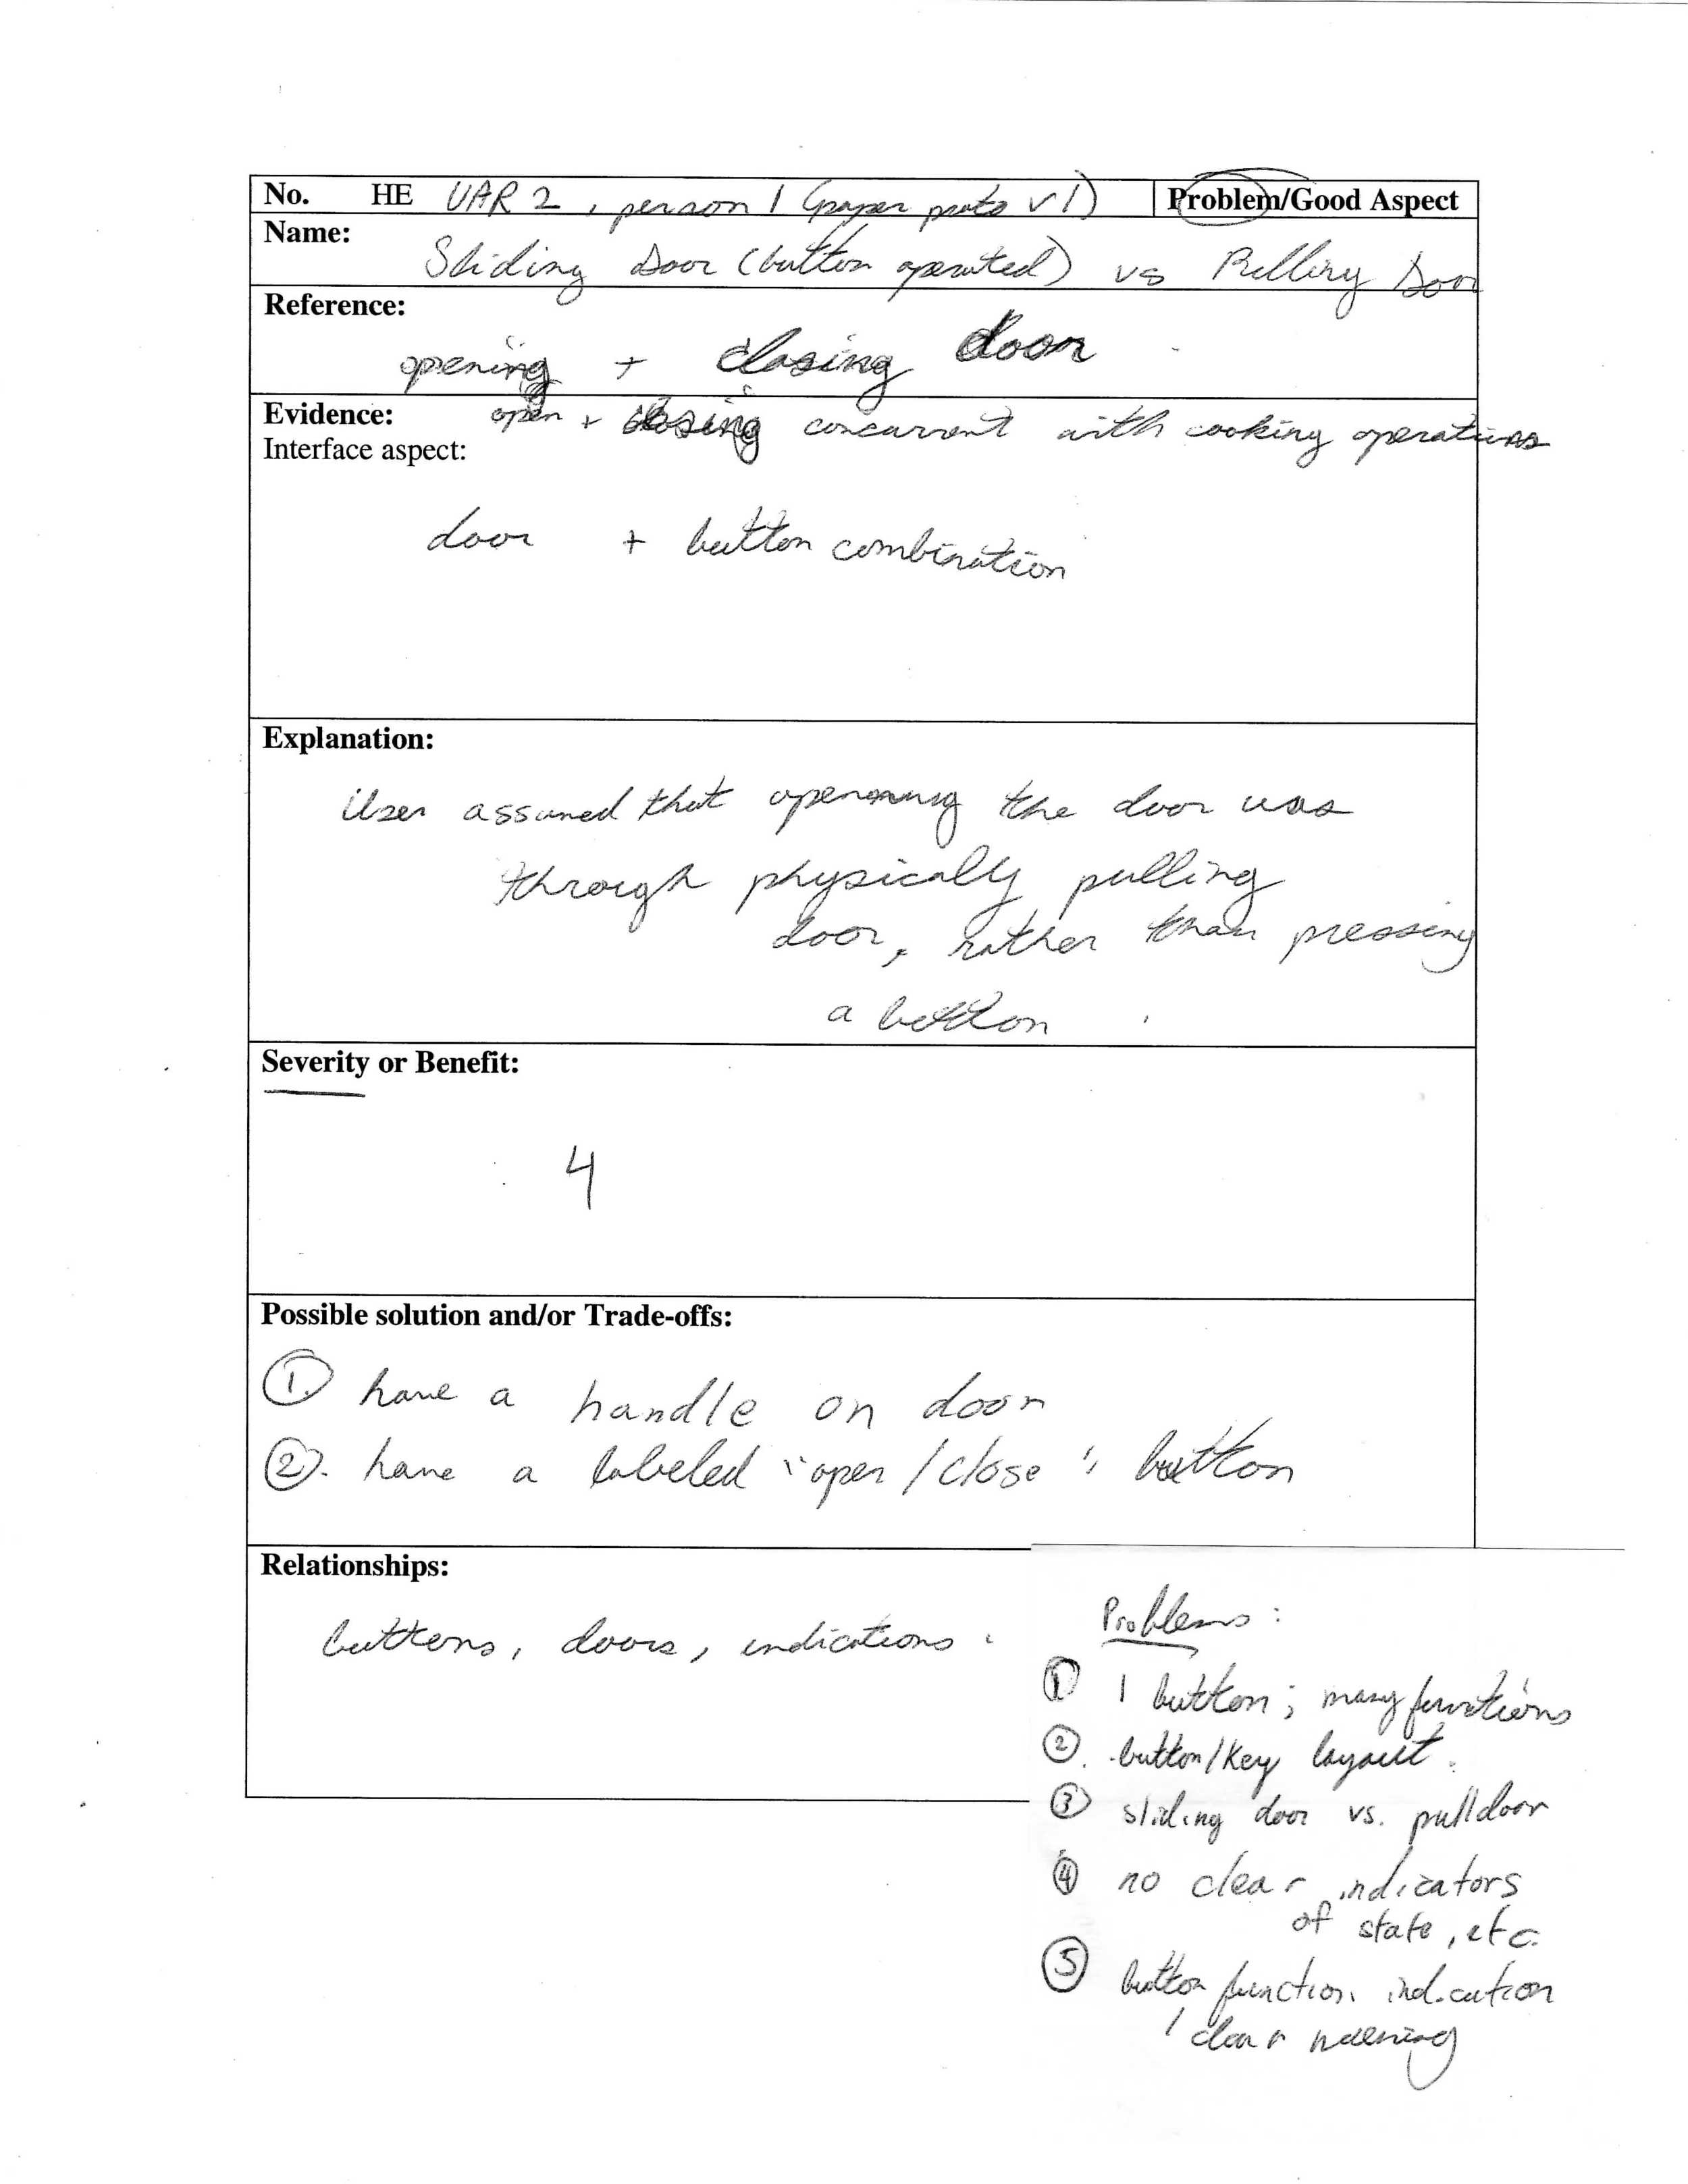 No. HE UAR 2, person 1 (paper proto v1) Problem/Good Aspect
Name:
Sliding Door (button operated) vs Pulling Door
Reference:
opening + closing door
Evidence: open + closing concurrent with cooking operations
Interface aspect:
door + button combination
Explanation:
User assumed that opening the door was
through physically pulling
door, rather than pressing
a button.
Severity or Benefit:
4
Possible solution and/or Trade-offs:
① have a handle on door
②. have a labeled "open/close" button
Relationships:
buttons, doors, indications.
Problems:
① 1 button; many functions
②. button/key layout.
③ sliding door vs. pull door
④ no clear indicators
of state, etc.
⑤ button function indication
/ clear meaning